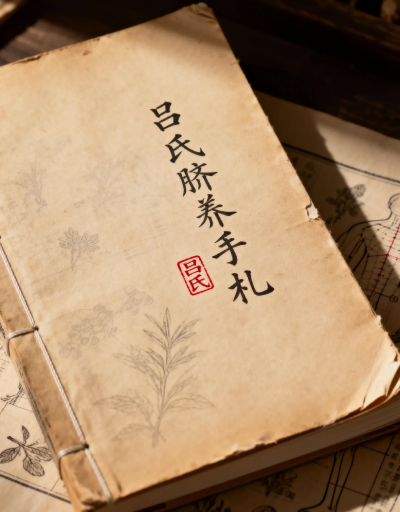 吕氏脐养手札
吕氏